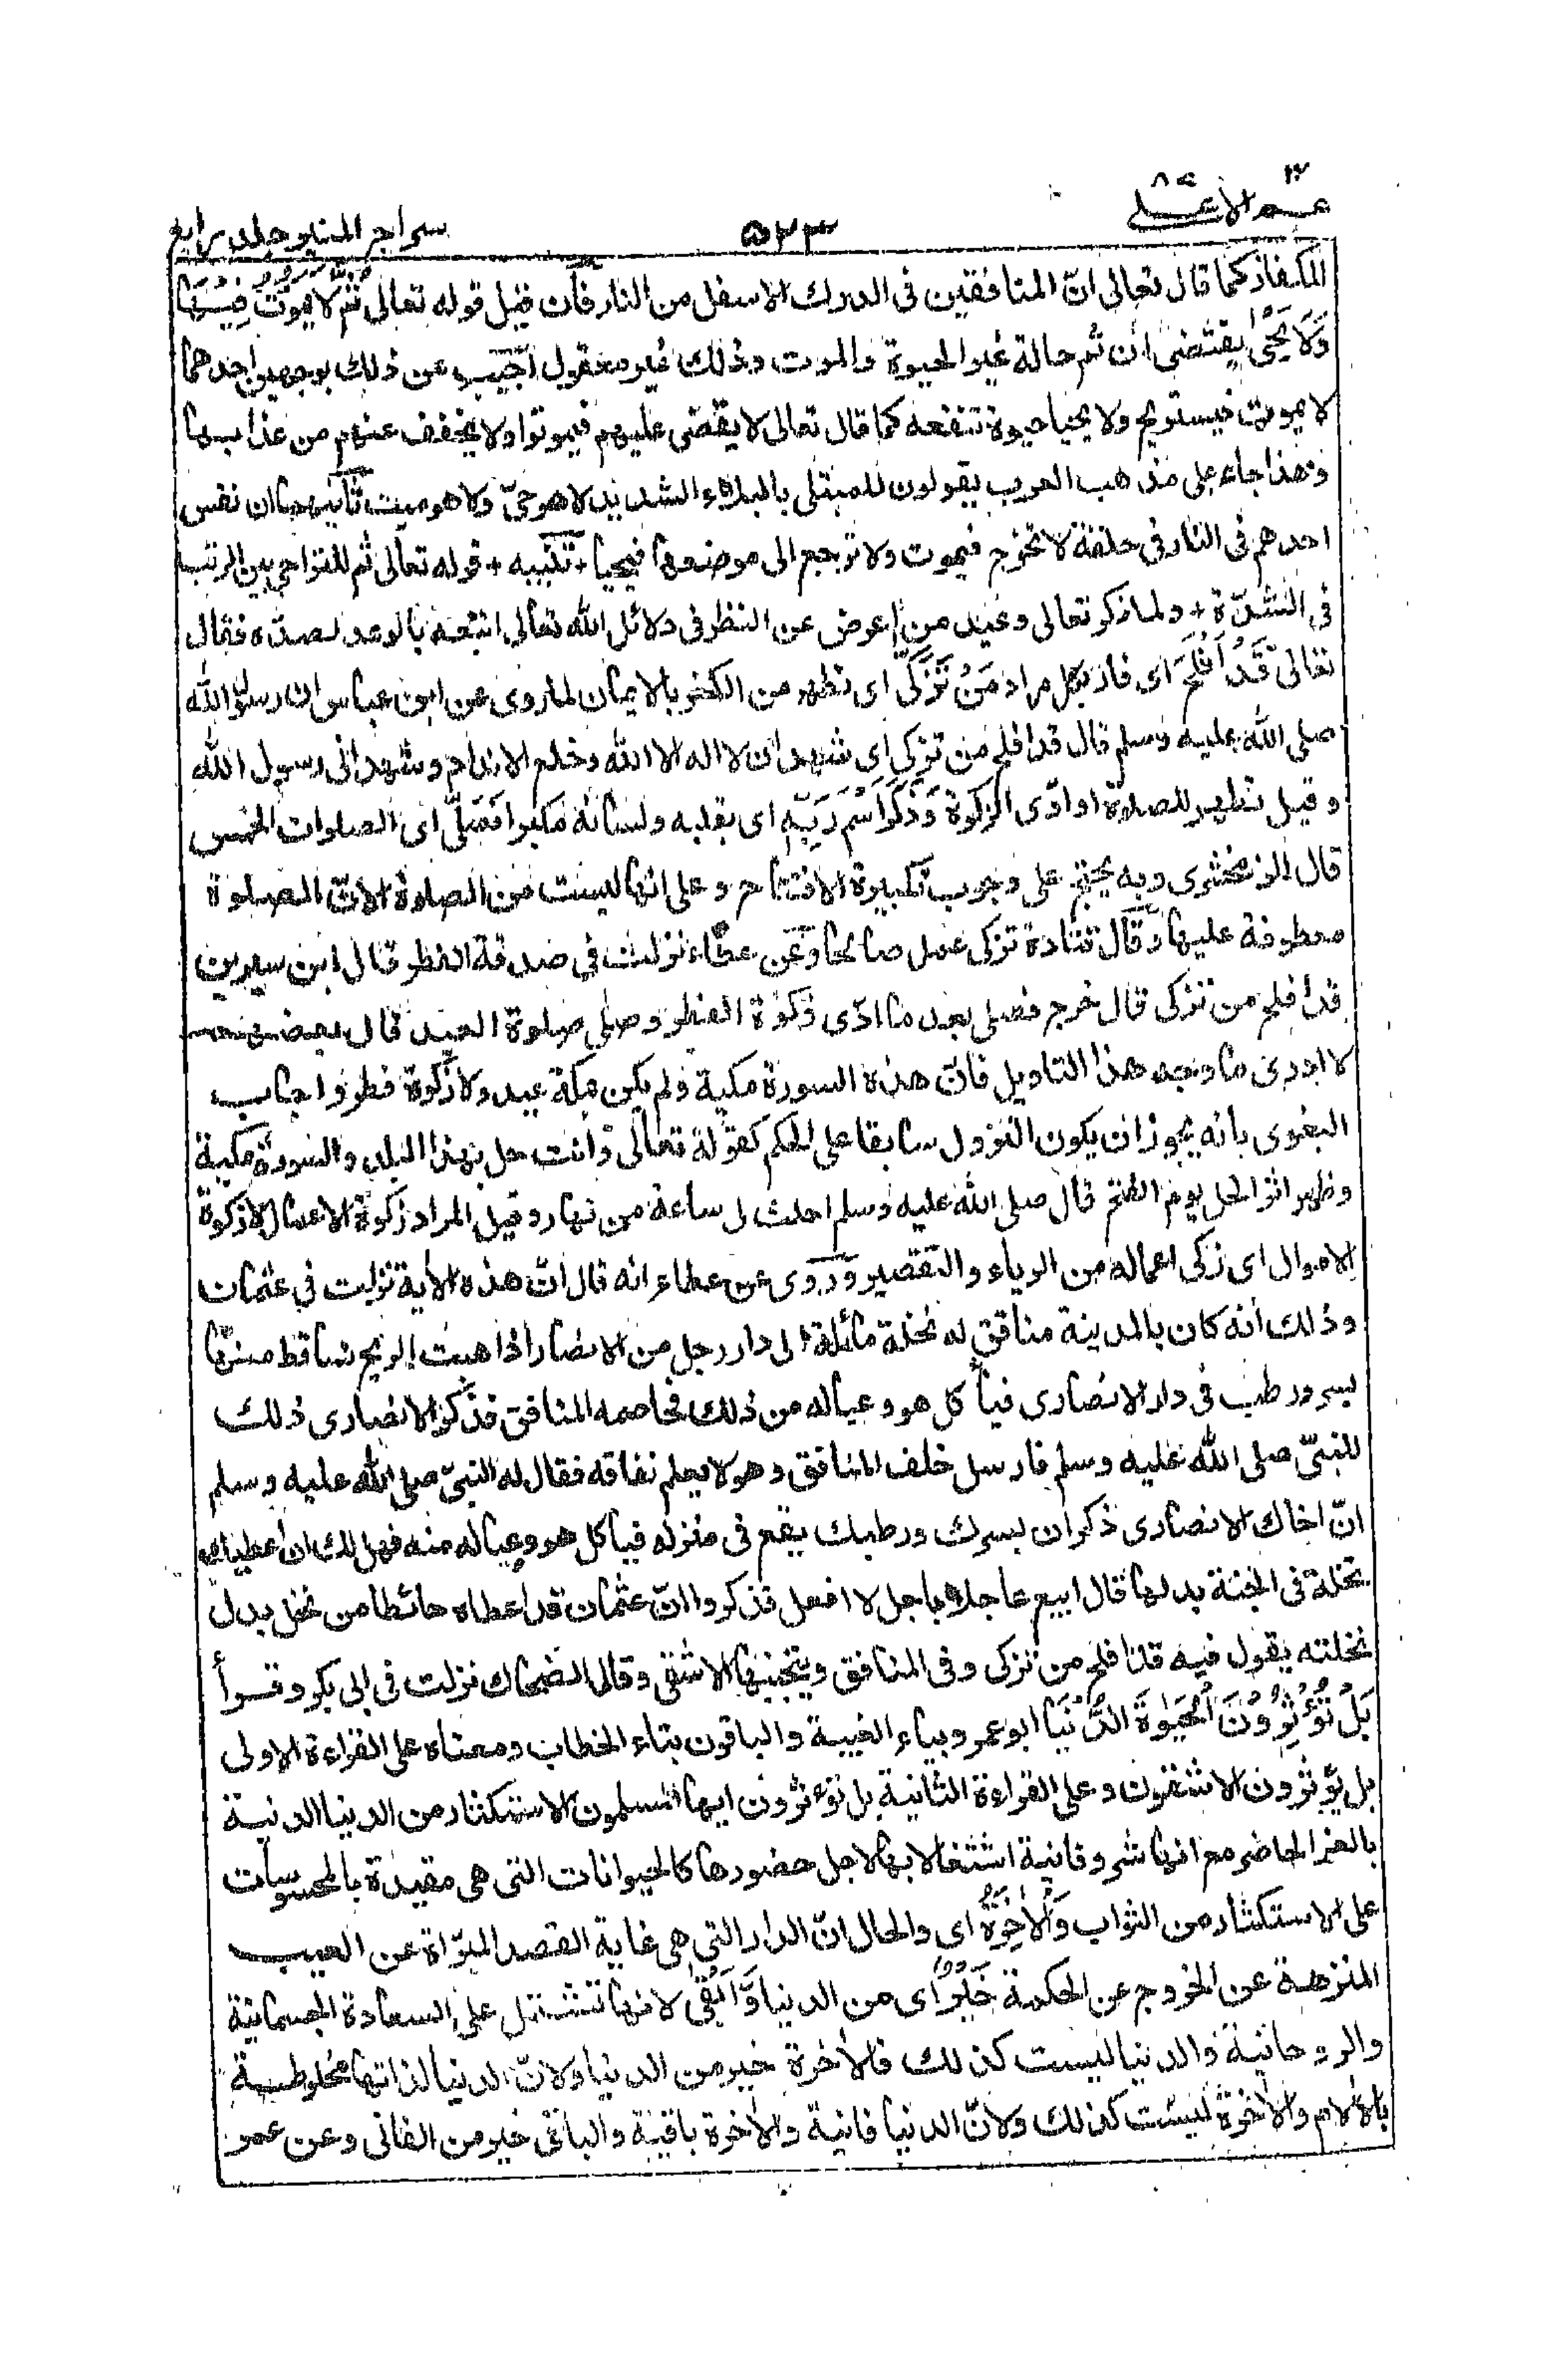 عم الاعلى ٨٧
٥٢٣
سراج المنير جلد رابع
الكفار كما قال تعالى انّ المنافقين فى الدرك الاسفل من النار فان قيل قوله تعالى ثُمَّ لَا يَمُوْتُ فِيْهَا
وَلَا يَحْيٰى يقتضى ان ثم حالة غير الحيوة والموت وذلك غير معقول اجيب عن ذلك بوجهين احدهما
لا يموت فيستريح ولا يحيا حيوة تنفعه كما قال تعالى لا يقضى عليهم فيموتوا ولا يخفف عنهم من عذابها
وهذا جاء على مذهب العرب يقولون للمبتلى بالبلاء الشديد لا هو حيّ ولا هو ميت ثانيهما ان نفس
احدهم فى النار فى حلقه لا تخرج فيموت ولا ترجع الى موضعها فيحيا + تنبيه + قوله تعالى ثم للتراخى بين الرتب
فى الشدّة + ولما ذكر تعالى وعيد من اعرض عن النظر فى دلائل الله تعالى اتبعه بالوعد لضدّه فقال
تعالى قَدْ اَفْلَحَ اى فاز بكل مراد مَنْ تَزَكّٰى اى تطهر من الكفر بالايمان لما روى عن ابن عباس ان رسول الله
صلى الله عليه وسلم قال قد افلح من تزكى اى شهد ان لا اله الا الله وخلع الانداد وشهد انى رسول الله
وقيل تطهر للصلاة او ادّى الزكوة وَذَكَرَ اسْمَ رَبِّهٖ اى بقلبه ولسانه مكبرا فَصَلّٰى اى الصلوات الخمس
قال الزمخشرى وبه يحتج على وجوب تكبيرة الافتتاح وعلى انها ليست من الصلاة لانّ الصلوة
معطوفة عليها وقال قتادة تزكى عمل صالحا وعن عطاء نزلت في صدقة الفطر قال ابن سيرين
قد افلح من تزكى قال خرج فصلى بعد ما ادّى زكوة الفطر وصلى صلوة العيد قال بعضهم
لا ادرى ما وجه هذا التاويل فانّ هذه السورة مكية ولم يكن بمكة عيد ولا زكوة فطر واجاب
البغوى بانه يجوز ان يكون النزول سابقا على الحكم كقوله تعالى وانت حل بهذا البلد والسورة مكية
وظهر اثر الحل يوم الفتح قال صلى الله عليه وسلم احلت لى ساعة من نهار وقيل المراد زكوة الاعمال لا زكوة
الاموال اى زكى اعماله من الرياء والتقصير وروى عن عطاء انه قال انّ هذه الاية نزلت في عثمان
وذلك انه كان بالمدينة منافق له نخلة مائلة الى دار رجل من الانصار اذا هبت الريح تساقط منها
بسر ورطب فى دار الانصارى فيأكل هو وعياله من ذلك فخاصمه المنافق فذكر الانصارى ذلك
للنبىّ صلى الله عليه وسلم فارسل خلف المنافق وهو لا يعلم نفاقه فقال له النبىّ صلى الله عليه وسلم
انّ اخاك الانصارى ذكر ان بسرك ورطبك يقع فى منزله فيأكل هو وعياله منه فهل لك ان اعطيك
نخلة فى الجنة بدلها قال ابيع عاجلا باجل لا افعل فذكروا انّ عثمان قد اعطاه حائطا من نخل بدل
نخلته يقول فيه قد افلح من تزكى وفى المنافق ويتجنبها الاشقى وقال الضحاك نزلت فى ابى بكر وقرأ
بَلْ تُؤْثِرُوْنَ الْحَيٰوةَ الدُّنْيَا ابو عمرو بياء الغيبة والباقون بتاء الخطاب ومعناه على القراءة الاولى
بل يؤثرون الاشقون وعلى القراءة الثانية بل تؤثرون ايها المسلمون الاستكثار من الدنيا الدنية
بالعز الحاضر مع انها شر وفانية اشتغالا بها لاجل حضورها كالحيوانات التى هى مقيدة بالمحسوسات
على الاستكثار من الثواب وَالْاٰخِرَةُ اى والحال انّ الدار التي هى غاية القصد المبرّاة عن العيب
المنزهة عن الخروج عن الحكمة خَيْرٌ اى من الدنيا وَّاَبْقٰى لانها تشتمل على السعادة الجسمانية
والروحانية والدنيا ليست كذلك فالاخرة خير من الدنيا ولانّ الدنيا لذاتها مخلوطة
بالالام والاخرة ليست كذلك ولانّ الدنيا فانية والاخرة باقية والباقى خير من الفانى وعن عمر